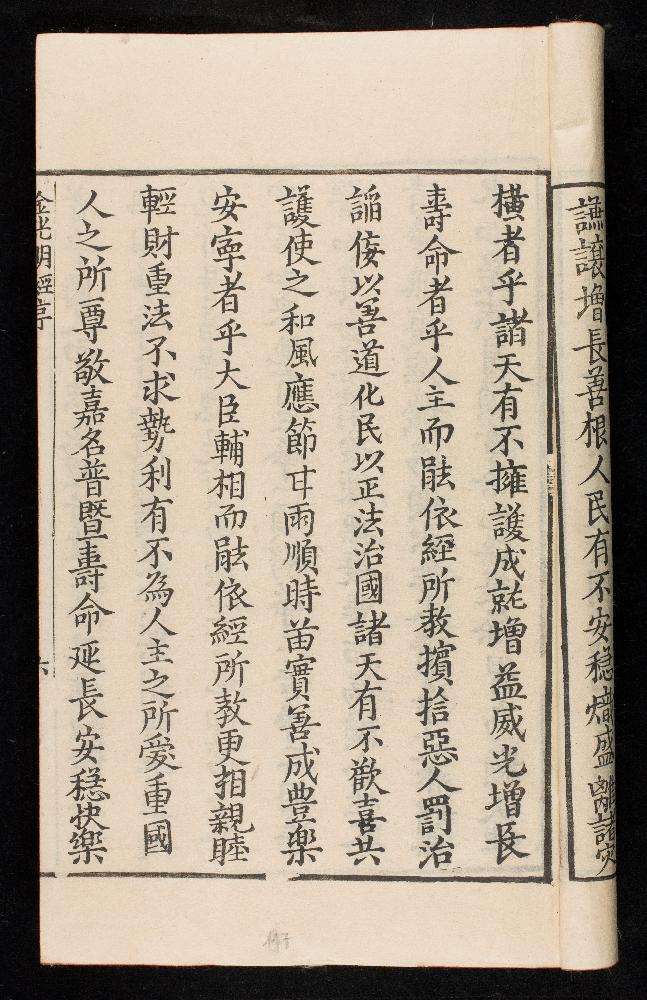 謙讓增長善根人民有不安穩熾盛離諸灾
橫者乎諸天有不擁護成就增益威光增長
壽命者乎人主而能依經所教擯捨惡人罰治
謟侫以善道化民以正法治國諸天有不歡喜共
護使之和風應節甘雨順時苗實善成豊樂
安寧者乎大臣輔相而能依經所教更相親睦
輕財重法不求勢利有不為人主之所愛重國
人之所尊敬嘉名普暨壽命延長安穩快樂
金光明經序
六